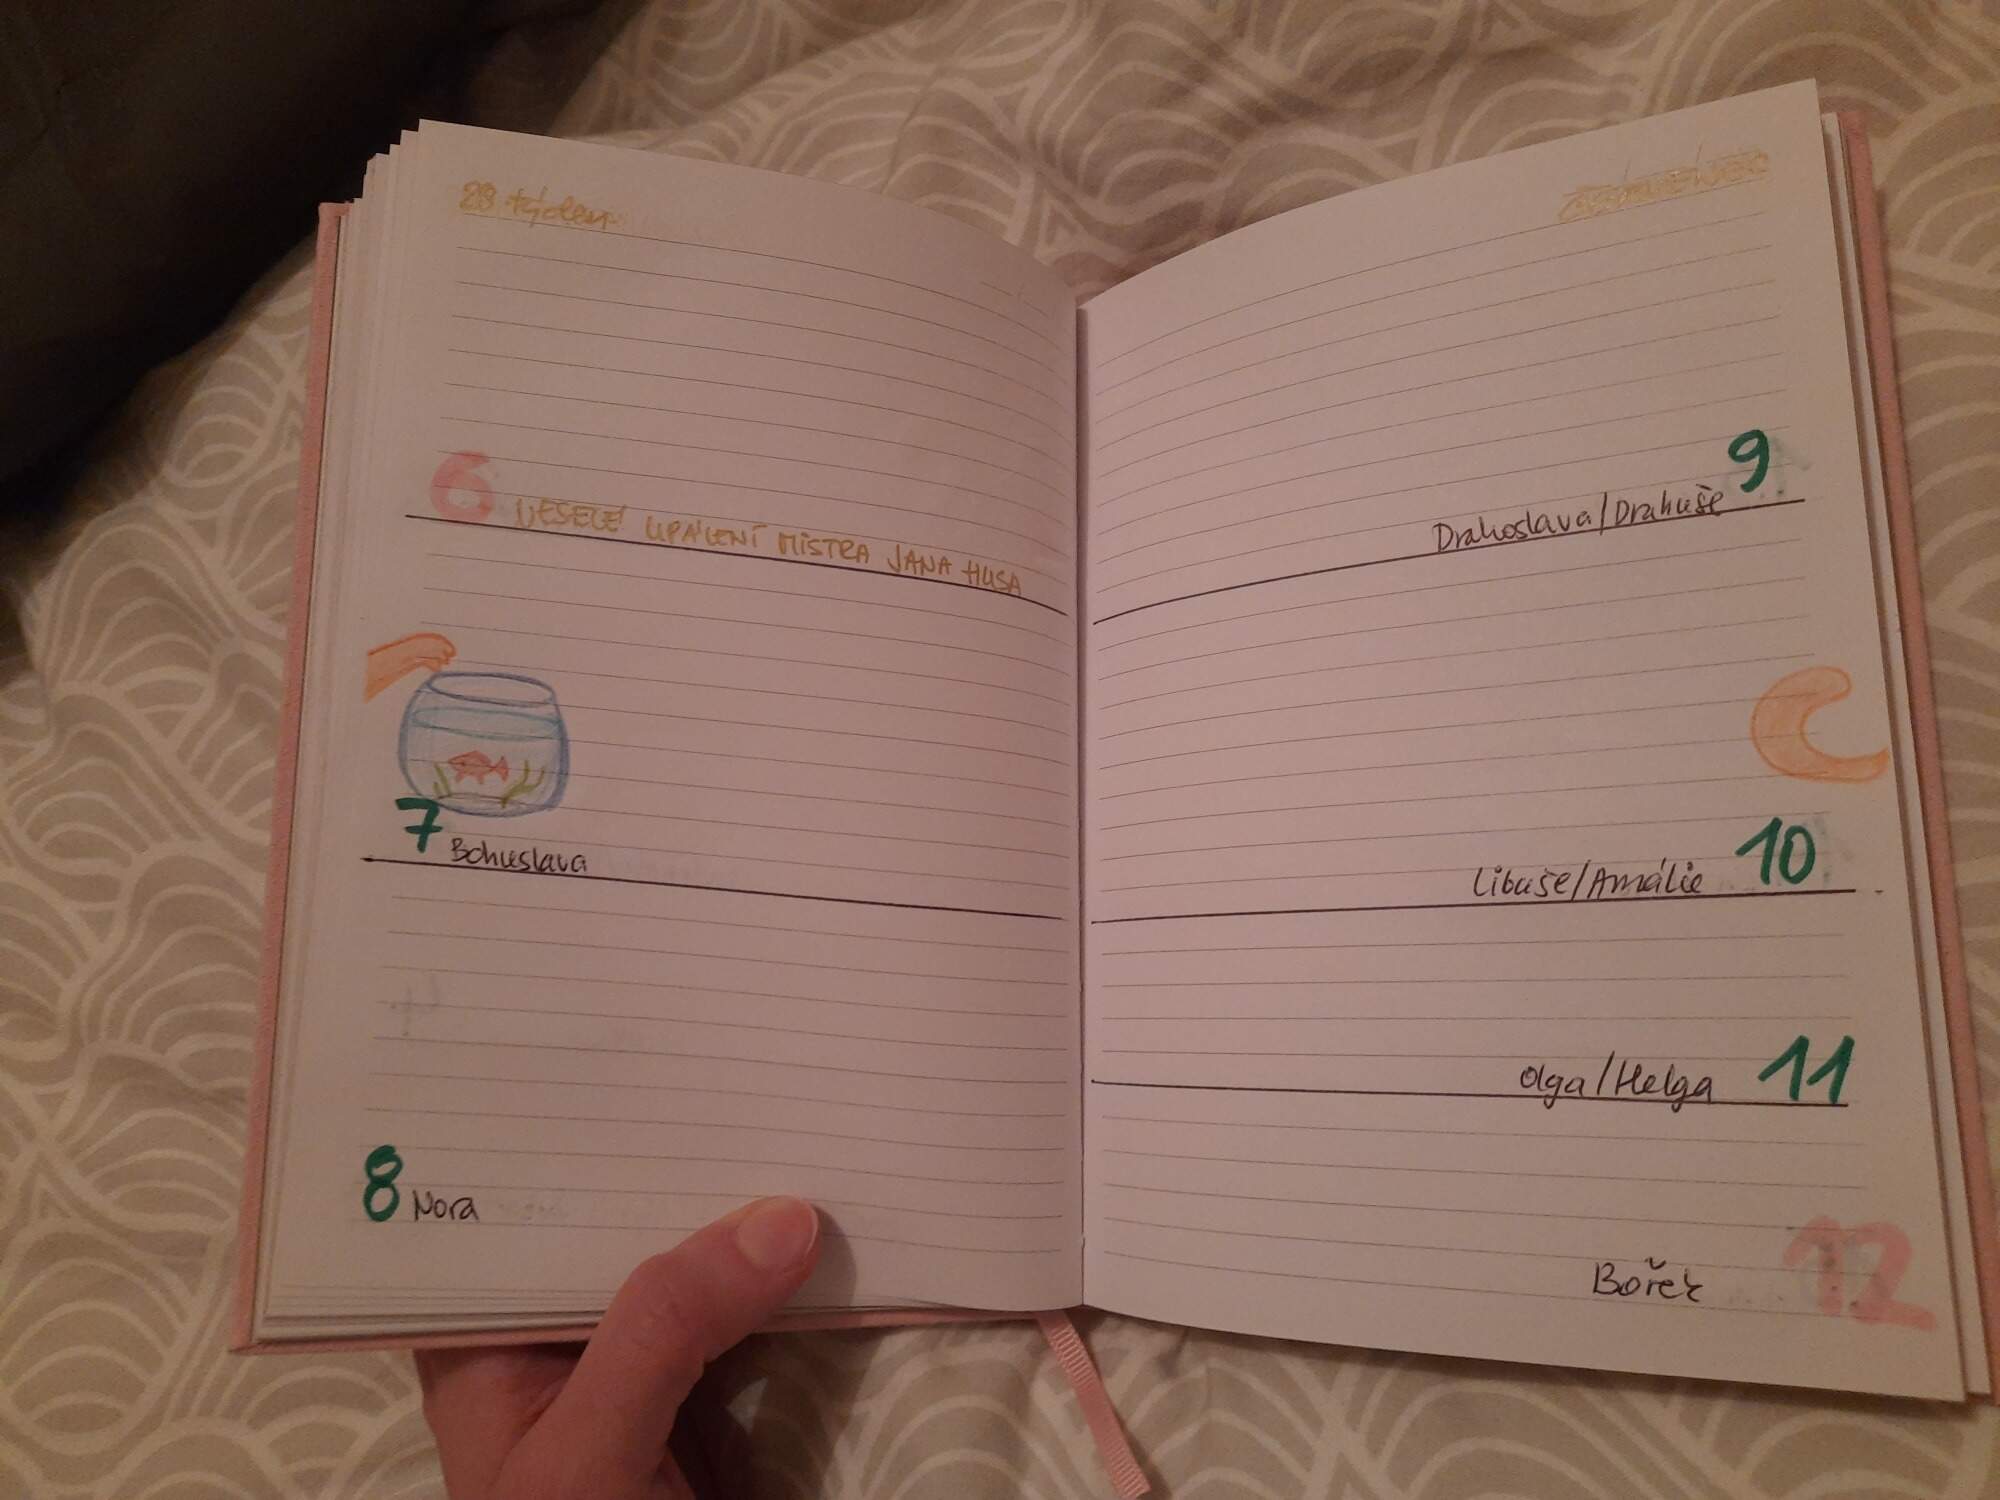 28 týden
6 VESELÉ UPÁLENÍ MISTRA JANA HUSA
7 Bohuslava
8 Nora
ČERVENEC
Drahoslava/Drahuše 9
Libuše/Amálie 10
Olga/Helga 11
Bořek 12